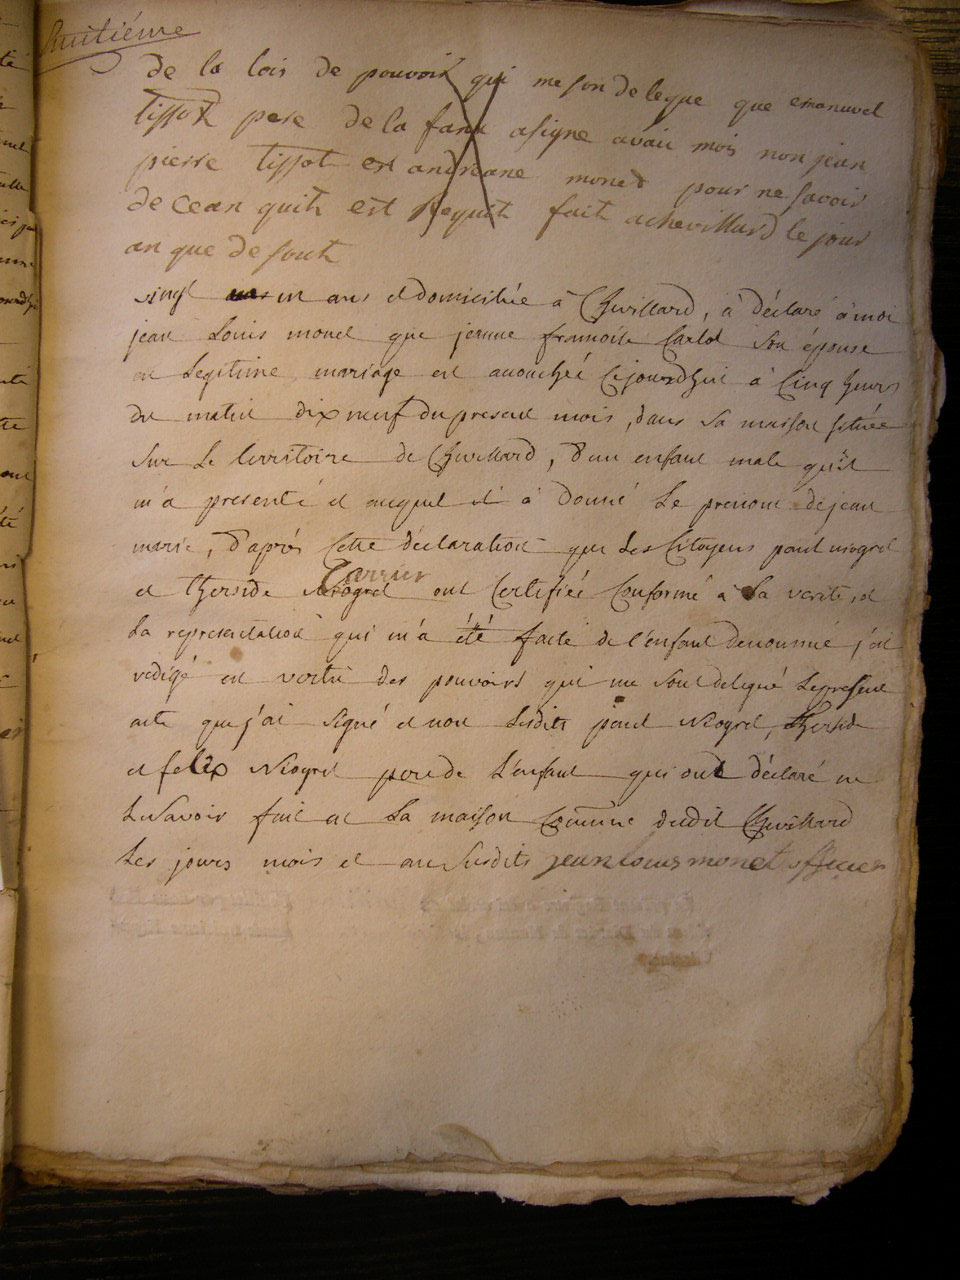 huitiéme
de la lois de pouvoir qui me son delegue que emanuvel
tissot pere de la fant asigne avaic mois non jean
pierre tissot est andreane monet pour ne savoir
de cean quit est Requit fait a chevillard le jour
an que de sout
vingt un ans et domicilié à Chevillard, à déclaré à moi
jean Louis monet que jeanne francoise Carlot son épouse
en Legitime mariage est accouchée cejourdhui à Cinq heures
du matin dix neuf du present mois, dans sa maison située
sur Le territoire de Chevillard, d'un enfant male qu'il
m'a presenté et auquel il à donné Le prenom de jean
marie, d'après Cette déclaration que Les Citoyens paul niogret
Carrier
et therside niogret ont Certifiée Conforme à La verité, et
La representation qui m'a été faite de l'enfant denommé, j'ai
redigé en vertu des pouvoirs qui me sont delegué Le present
acte que j'ai signé et non Lesdits paul Niogret, therside
et felix Niogret pere de L'enfant qui ont déclaré ne
Le savoir fait en La maison Commune dudit Chevillard
Les jours mois et an susdits jean louis monet officier